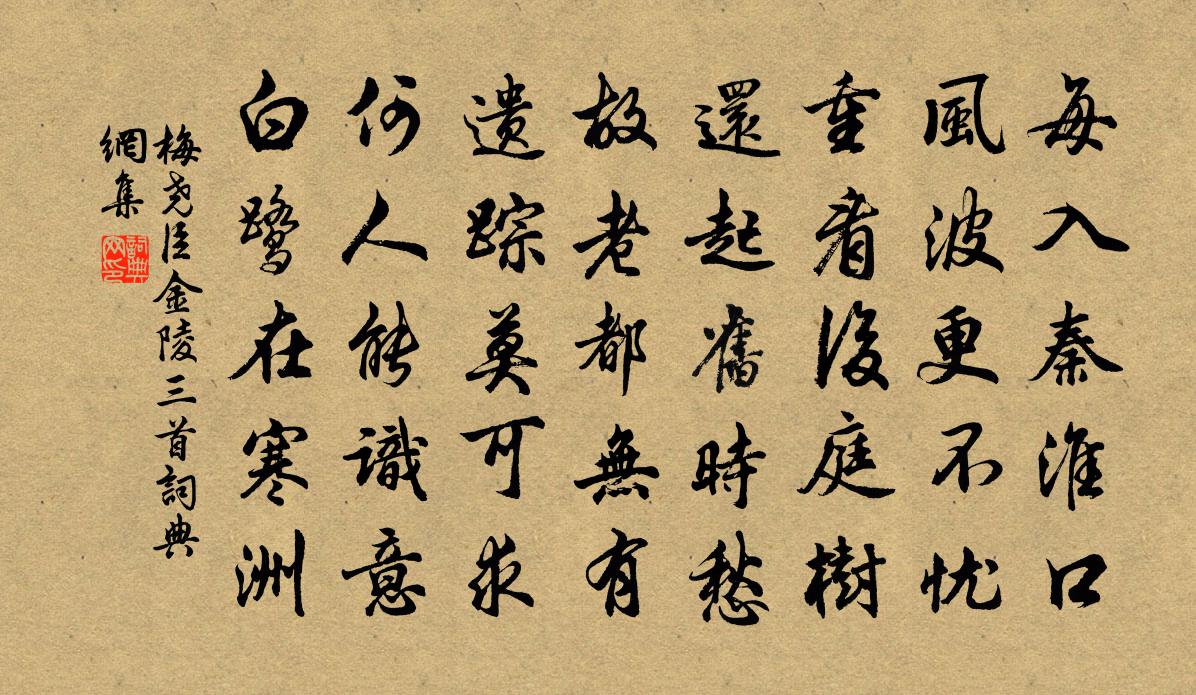 每入秦淮口
風波更不忧
重看後庭樹
還起舊時愁
故老都無有
遗踪莫可求
何人能識意
白鹭在寒洲
梅尧臣金陵三首詞典
網集
詞典
网印